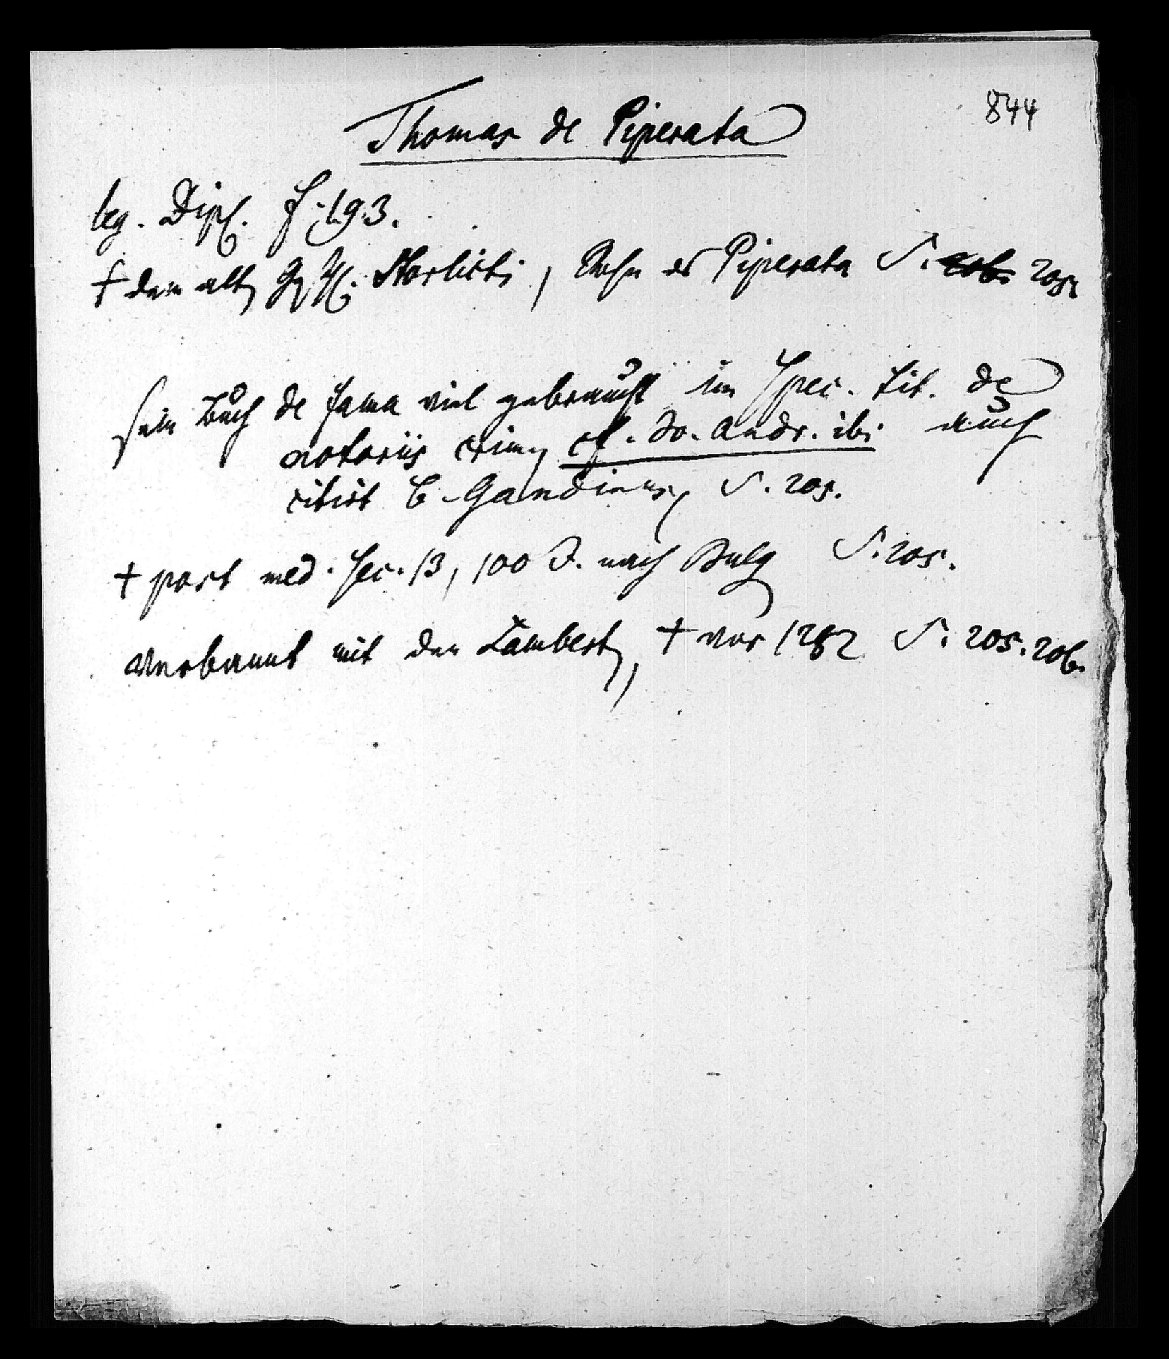 844
Thomas de Piperata
leg. Dipl. p. 193.
† dem alten Marlitti, Sohn es Piperata S. 205.
sein Buch de fama viel gebraucht im Spec. tit. de
notoriis crim. cf. Jo. Andr. ibi auch
citirt b. Gandinus, S. 205.
† post med. sec. 13, 100 J. nach Bulg S. 205.
verbannt mit den Lambert, † vor 1282 S. 205. 206.